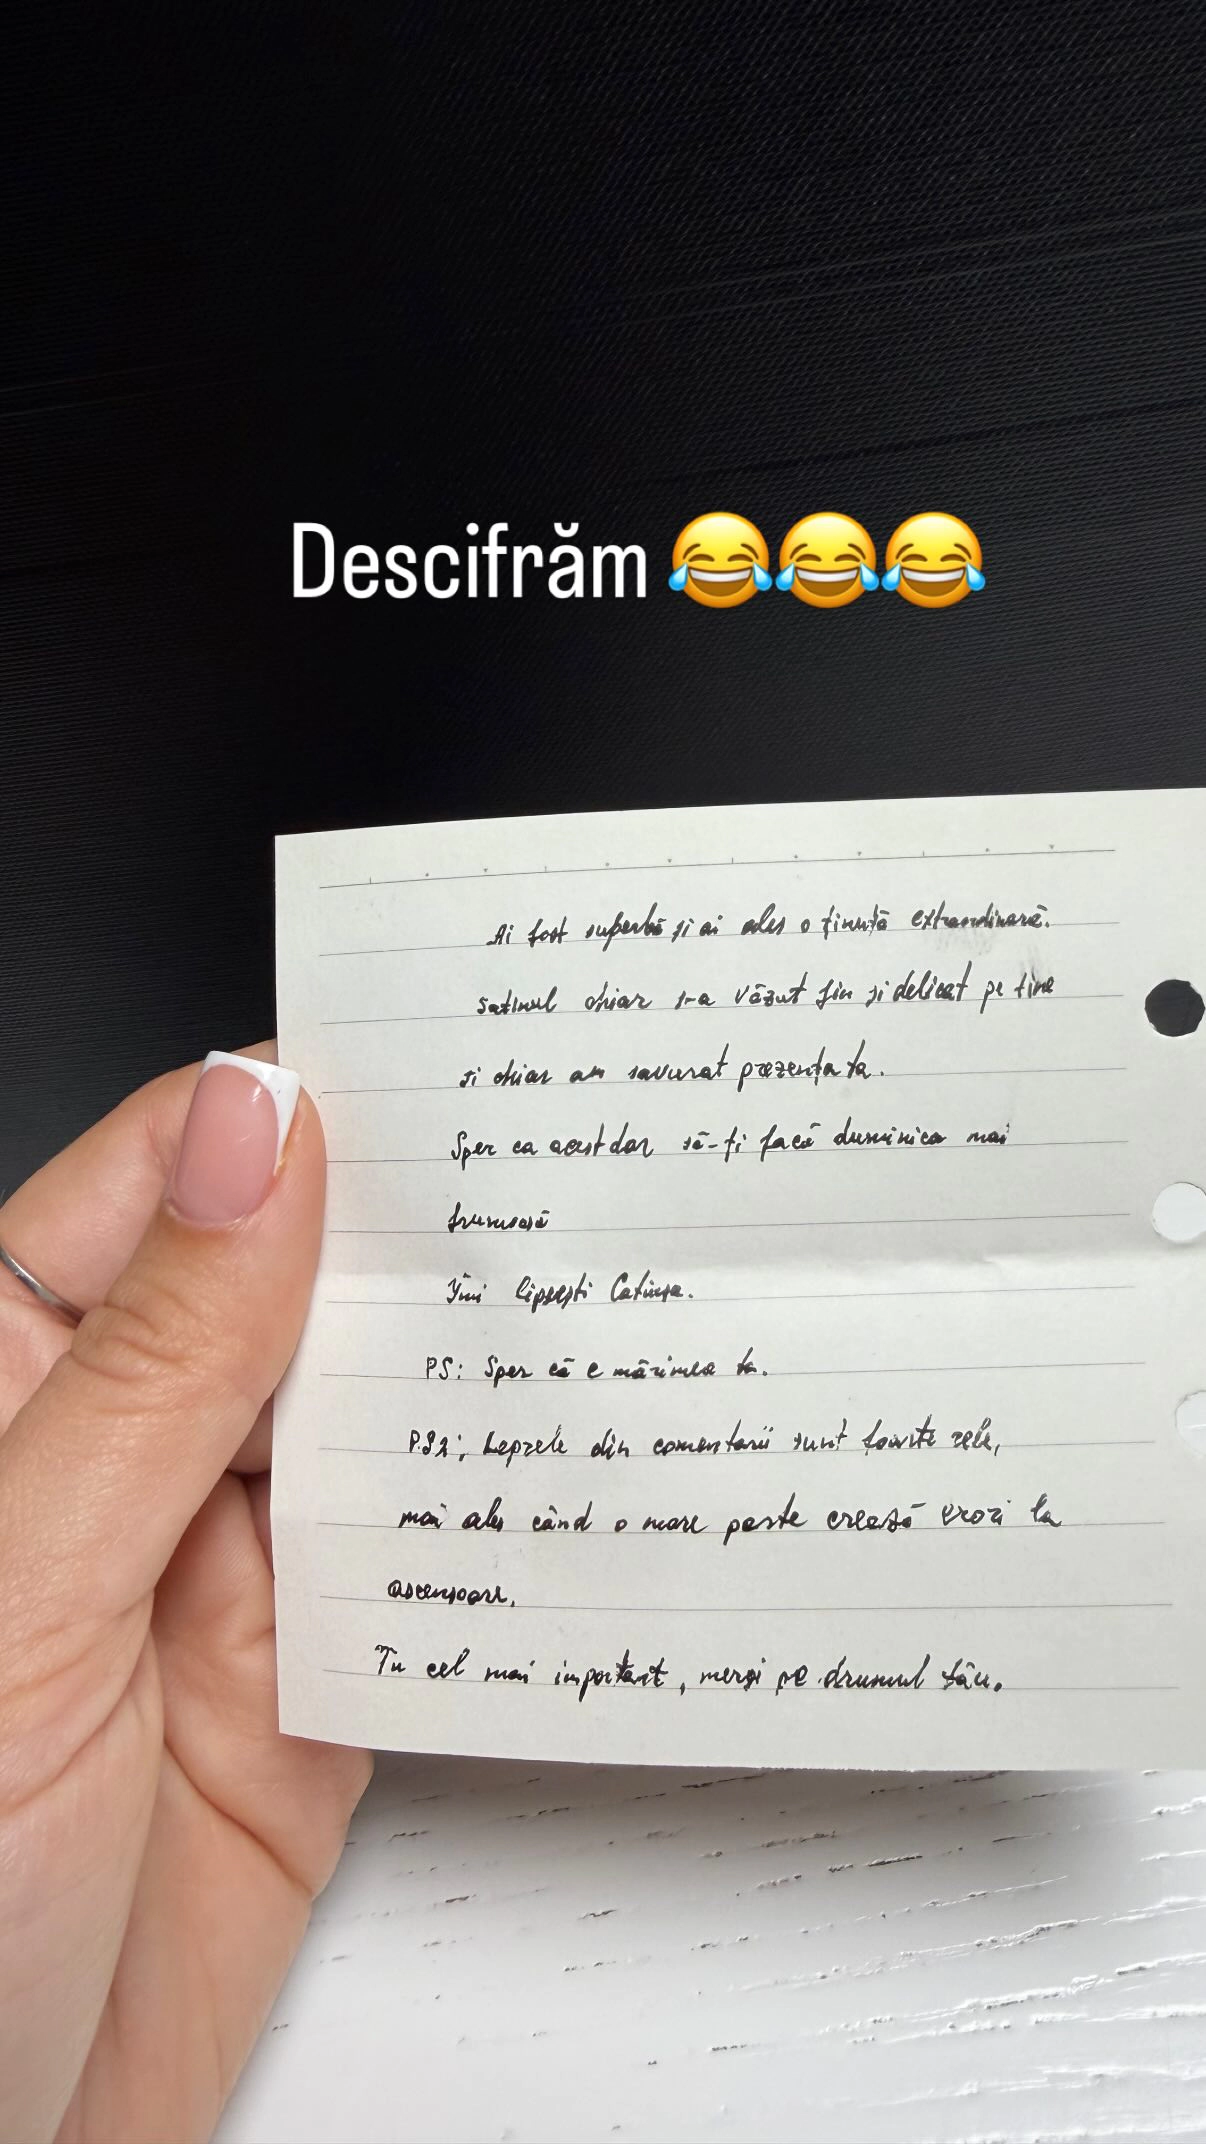 Descifrăm 😂😂😂
Ai fost superbă și ai ales o ținută extraordinară.
Satinul chiar s-a văzut fin și delicat pe tine
și chiar am savurat prezența ta.
Sper ca acest dar să-ți facă duminica mai
frumoasă
Îmi lipsești Catinca.
PS: Sper că e mărimea ta.
PS2: Leprele din comentarii sunt foarte rele,
mai ales când o mare parte crează erori la
ascensoare.
Tu cel mai important, mergi pe drumul tău.